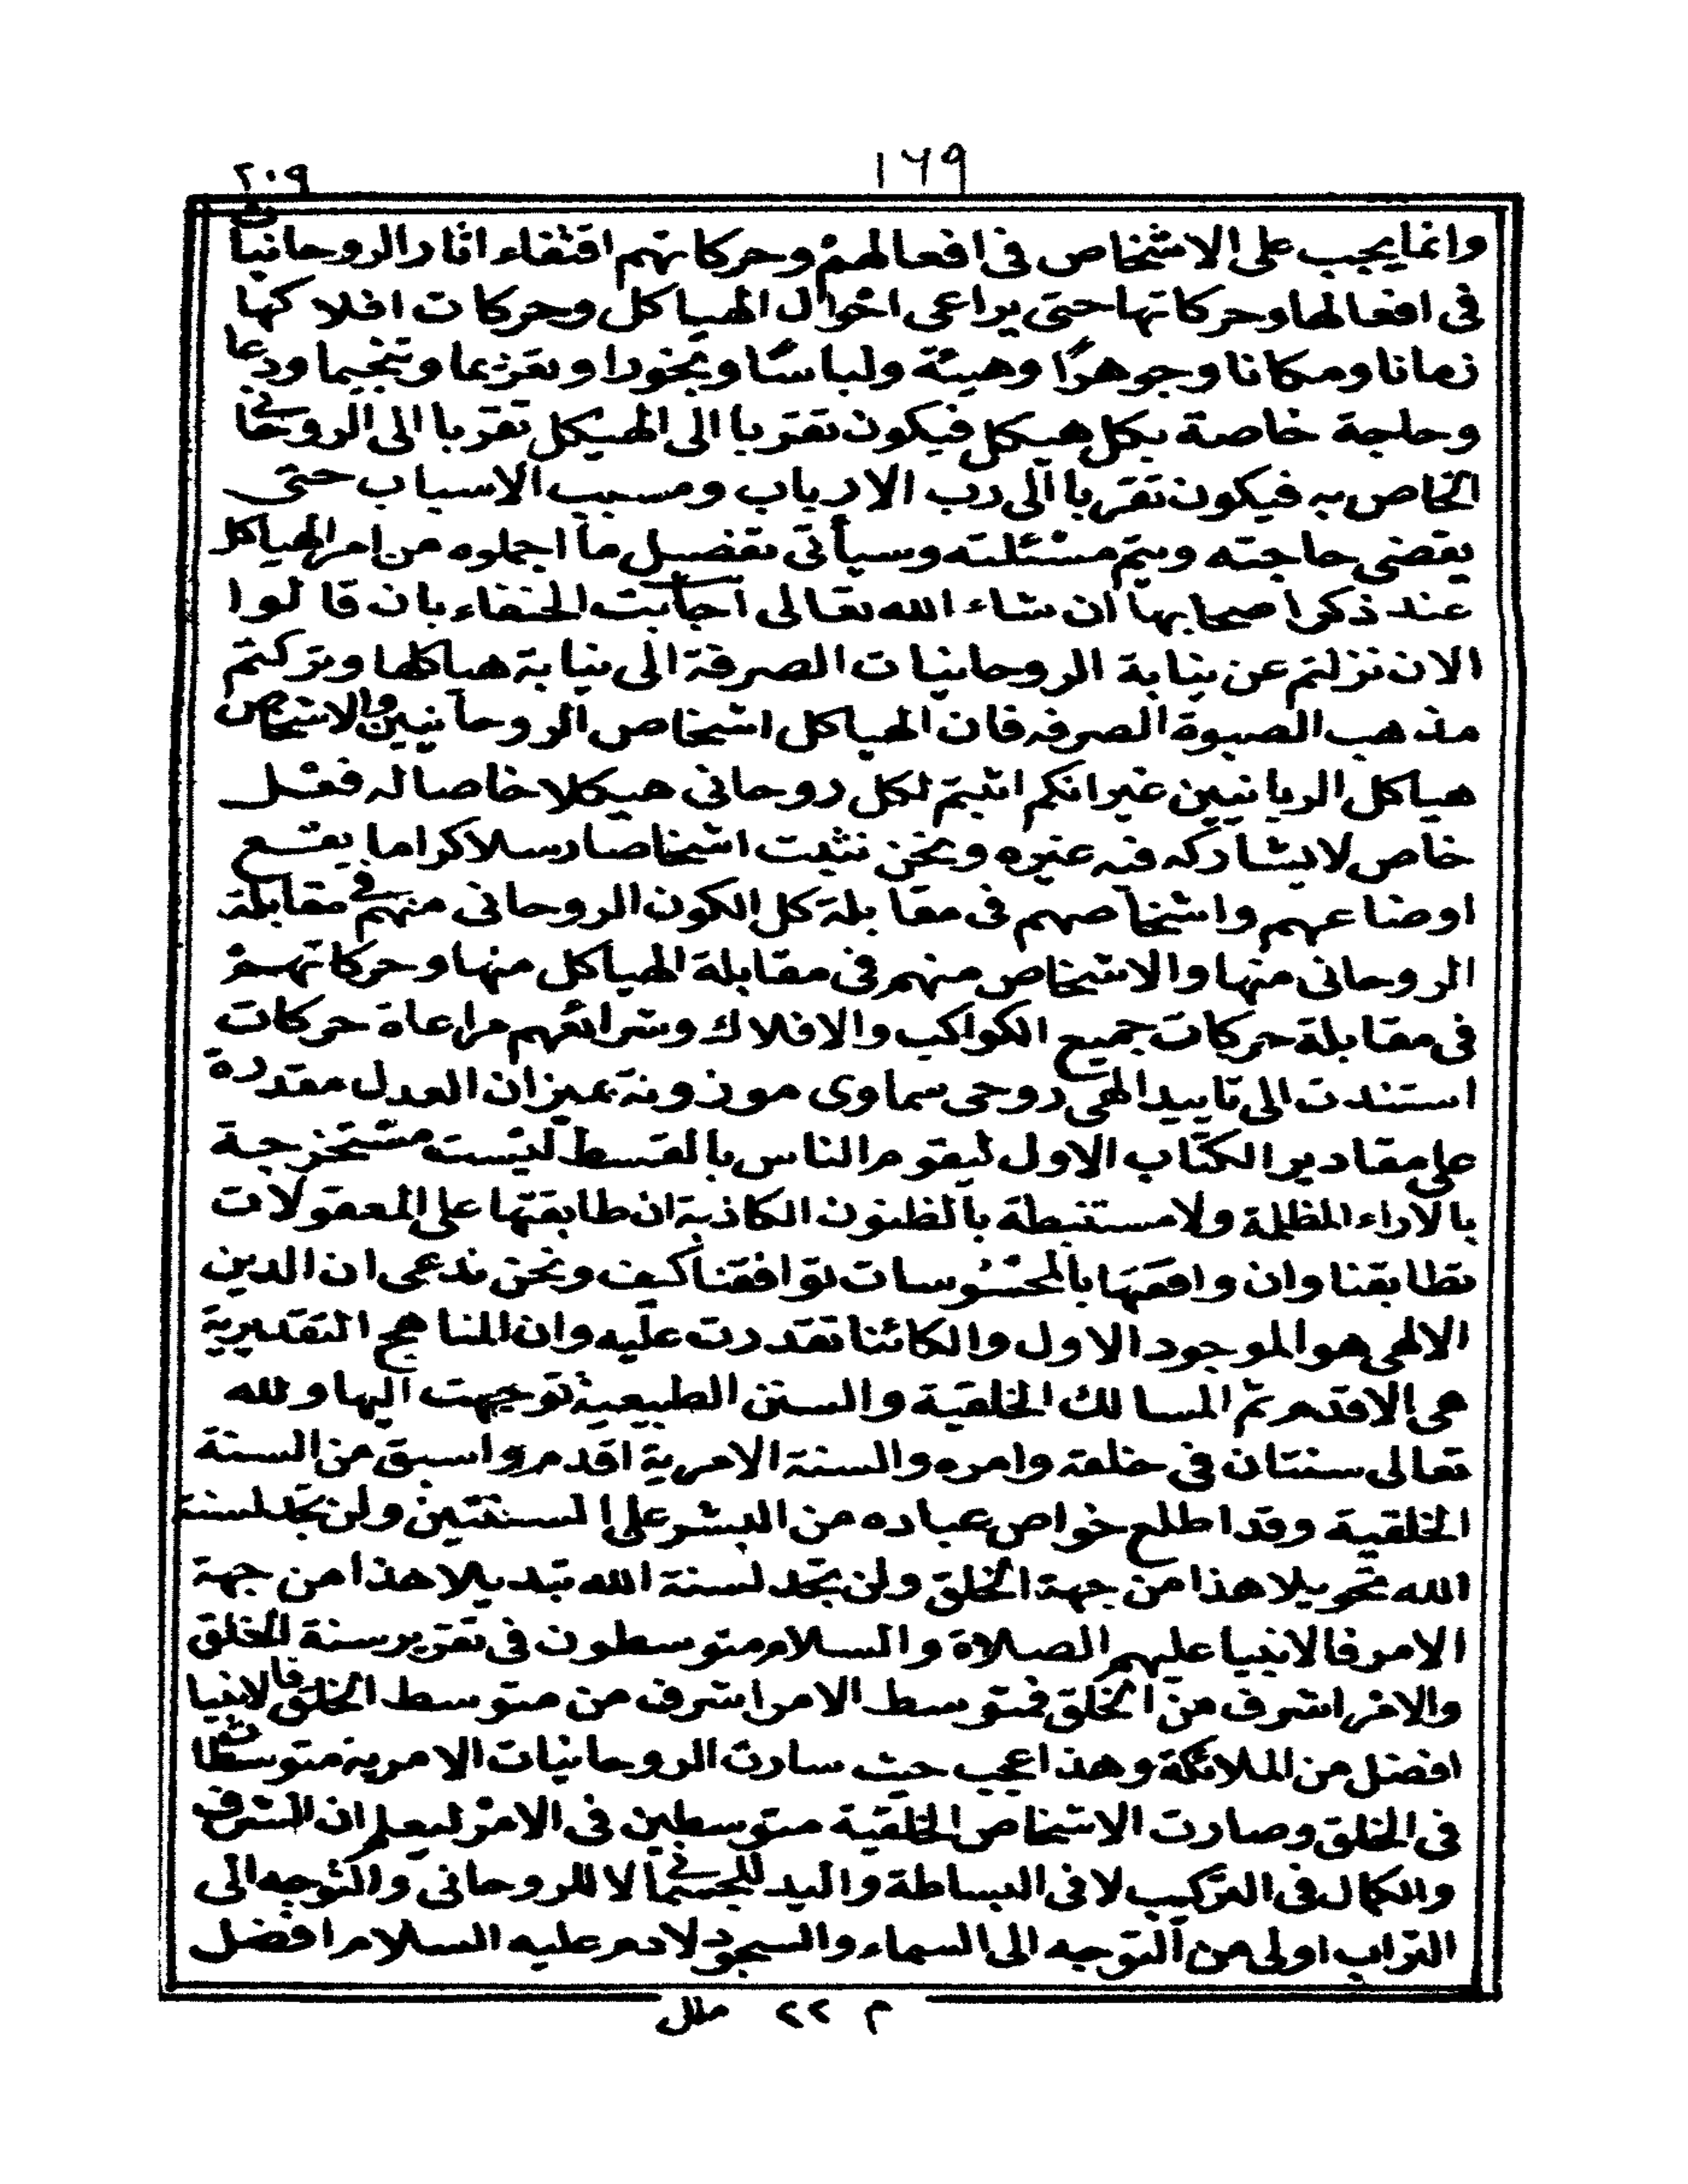 ١٦٩
٢٠٩
وانما يجب على الاشخاص في افعالهم وحركاتهم اقتفاء اثار الروحانيات
في افعالها وحركاتها حتى يراعى احوال الهياكل وحركات افلاكها
زمانا ومكانا وجوهرًا وهيئة ولباسًا وبخورا وتعزيما وتنجيما ودعا
وحاجة خاصة بكل هيكل فيكون تقربا الى الهيكل تقربا الى الروحاني
الخاص به فيكون تقربا الى رب الارباب ومسبب الاسباب حتى
يقضى حاجته ويتم مسئلته وسيأتى تفصيل ما اجملوه من امر الهياكل
عند ذكر اصحابها ان شاء الله تعالى اجابت الحنفاء بان قالوا
الان نزلتم عن نيابة الروحانيات الصرفة الى نيابة هياكلها وتركتم
مذهب الصبوة الصرفه فان الهياكل اشخاص الروحانيين والاشخاص
هياكل الربانيين غير انكم اثبتم لكل روحانى هيكلا خاصا له فعل
خاص لا يشاركه فيه غيره ونحن نثبت اشخاصا رسلا كراما يقع
اوضاعهم واشخاصهم فى مقابلة كل الكون الروحانى منهم في مقابلة
الروحانى منها والاشخاص منهم فى مقابلة الهياكل منها وحركاتهم
فى مقابلة حركات جميع الكواكب والافلاك وشرائعهم مراعاة حركات
استندت الى تاييد الهى روحى سماوى موزونة بميزان العدل مقدرة
على مقادير الكتاب الاول ليقوم الناس بالقسط ليست مستخرجة
بالاراء المظلمة ولا مستنبطة بالظنون الكاذبة ان طابقتها على المعقولات
تطابقنا وان وافقتها بالمحسوسات توافقنا كيف ونحن ندعى ان الدين
الالهى هو الموجود الاول والكائنا تقدرت عليه وان المناهج التقديرية
هى الاقدم ثم المسالك الخلقية والسنن الطبيعية توجهت اليها ولله
تعالى سنتان فى خلقه وامره والسنة الامرية اقدم واسبق من السنة
الخلقية وقد اطلع خواص عباده من البشر على السنتين ولن تجد لسنة
الله تحويلا هذا من جهة الخلق ولن تجد لسنة الله تبديلا هذا من جهة
الامر فالانبيا عليهم الصلاة والسلام متوسطون فى تقرير سنة الخلق
والامر اشرف من الخلق فمتوسط الامر اشرف من متوسط الخلق فالانبيا
افضل من الملائكة وهذا عجب حيث سارت الروحانيات الامرية متوسطات
فى الخلق وصارت الاشخاص الخلقية متوسطين فى الامر ليعلم ان الشرف
والكمال فى التركيب لا فى البساطة واليد للجسمانى لا للروحانى والتوجه الى
التراب اولى من التوجه الى السماء والسجود لادم عليه السلام افضل
م ٢٢ ملل